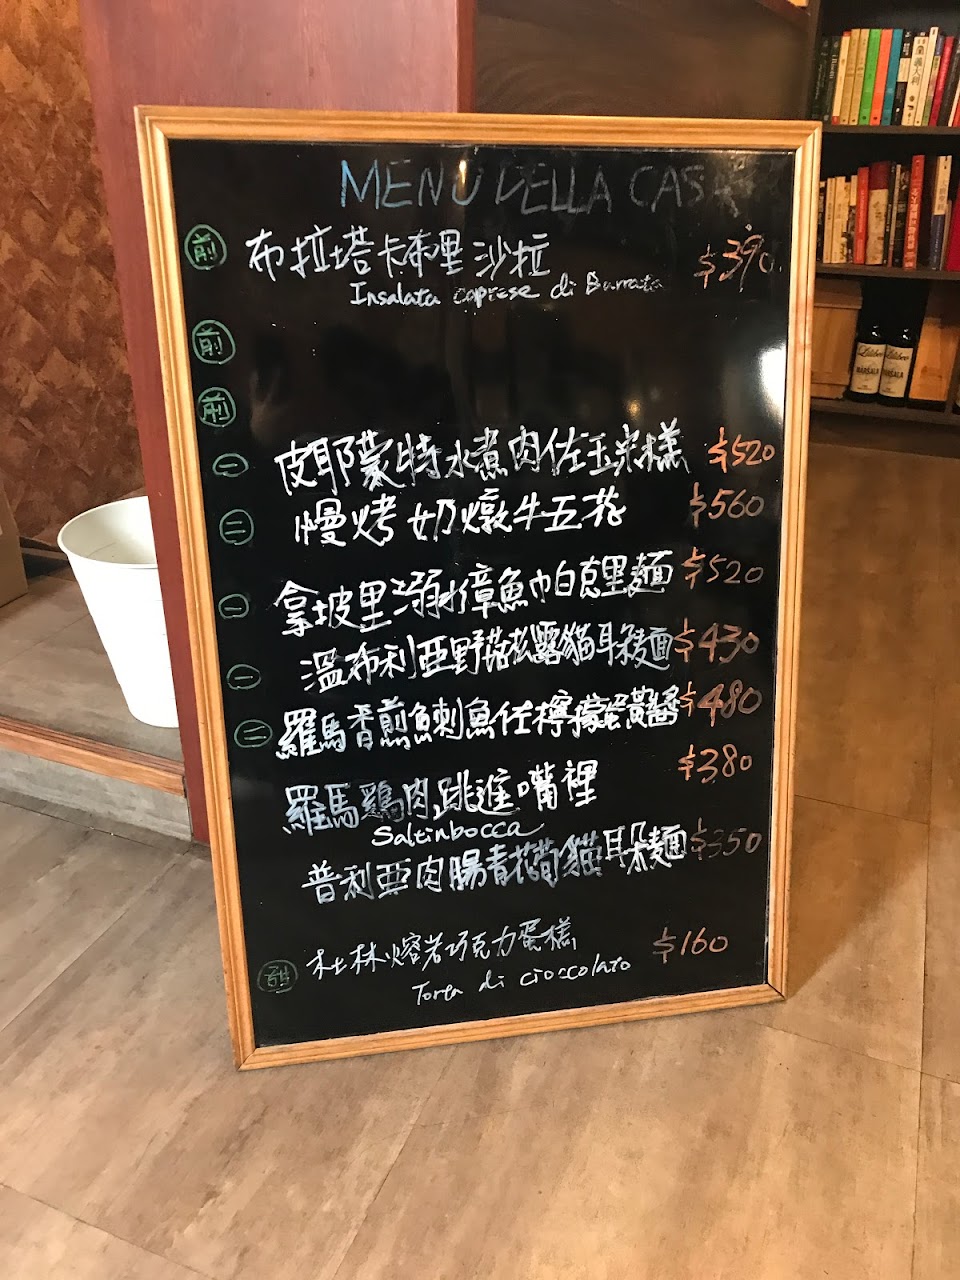 MENU DELLA CASA
前 布拉塔卡布里沙拉 $390
Insalata caprese di Burrata
前
前
一 皮耶蒙特水煮肉佐玉米糕 $520
二 慢烤奶燉牛五花 $560
一 拿坡里溺水章魚帕克里麵 $520
一 溫布利亞野菇松露貓耳朵麵 $430
二 羅馬香煎魚刺魚佐檸檬蛋黃醬 $480
羅馬雞肉跳進嘴裡 $380
Saltinbocca
普利亞肉腸青花筍貓耳朵麵 $350
甜 杜林熔岩巧克力蛋糕 $160
Torta di cioccolato
義大利
Lilibeo
MARSALA
Lilibeo
MARSALA